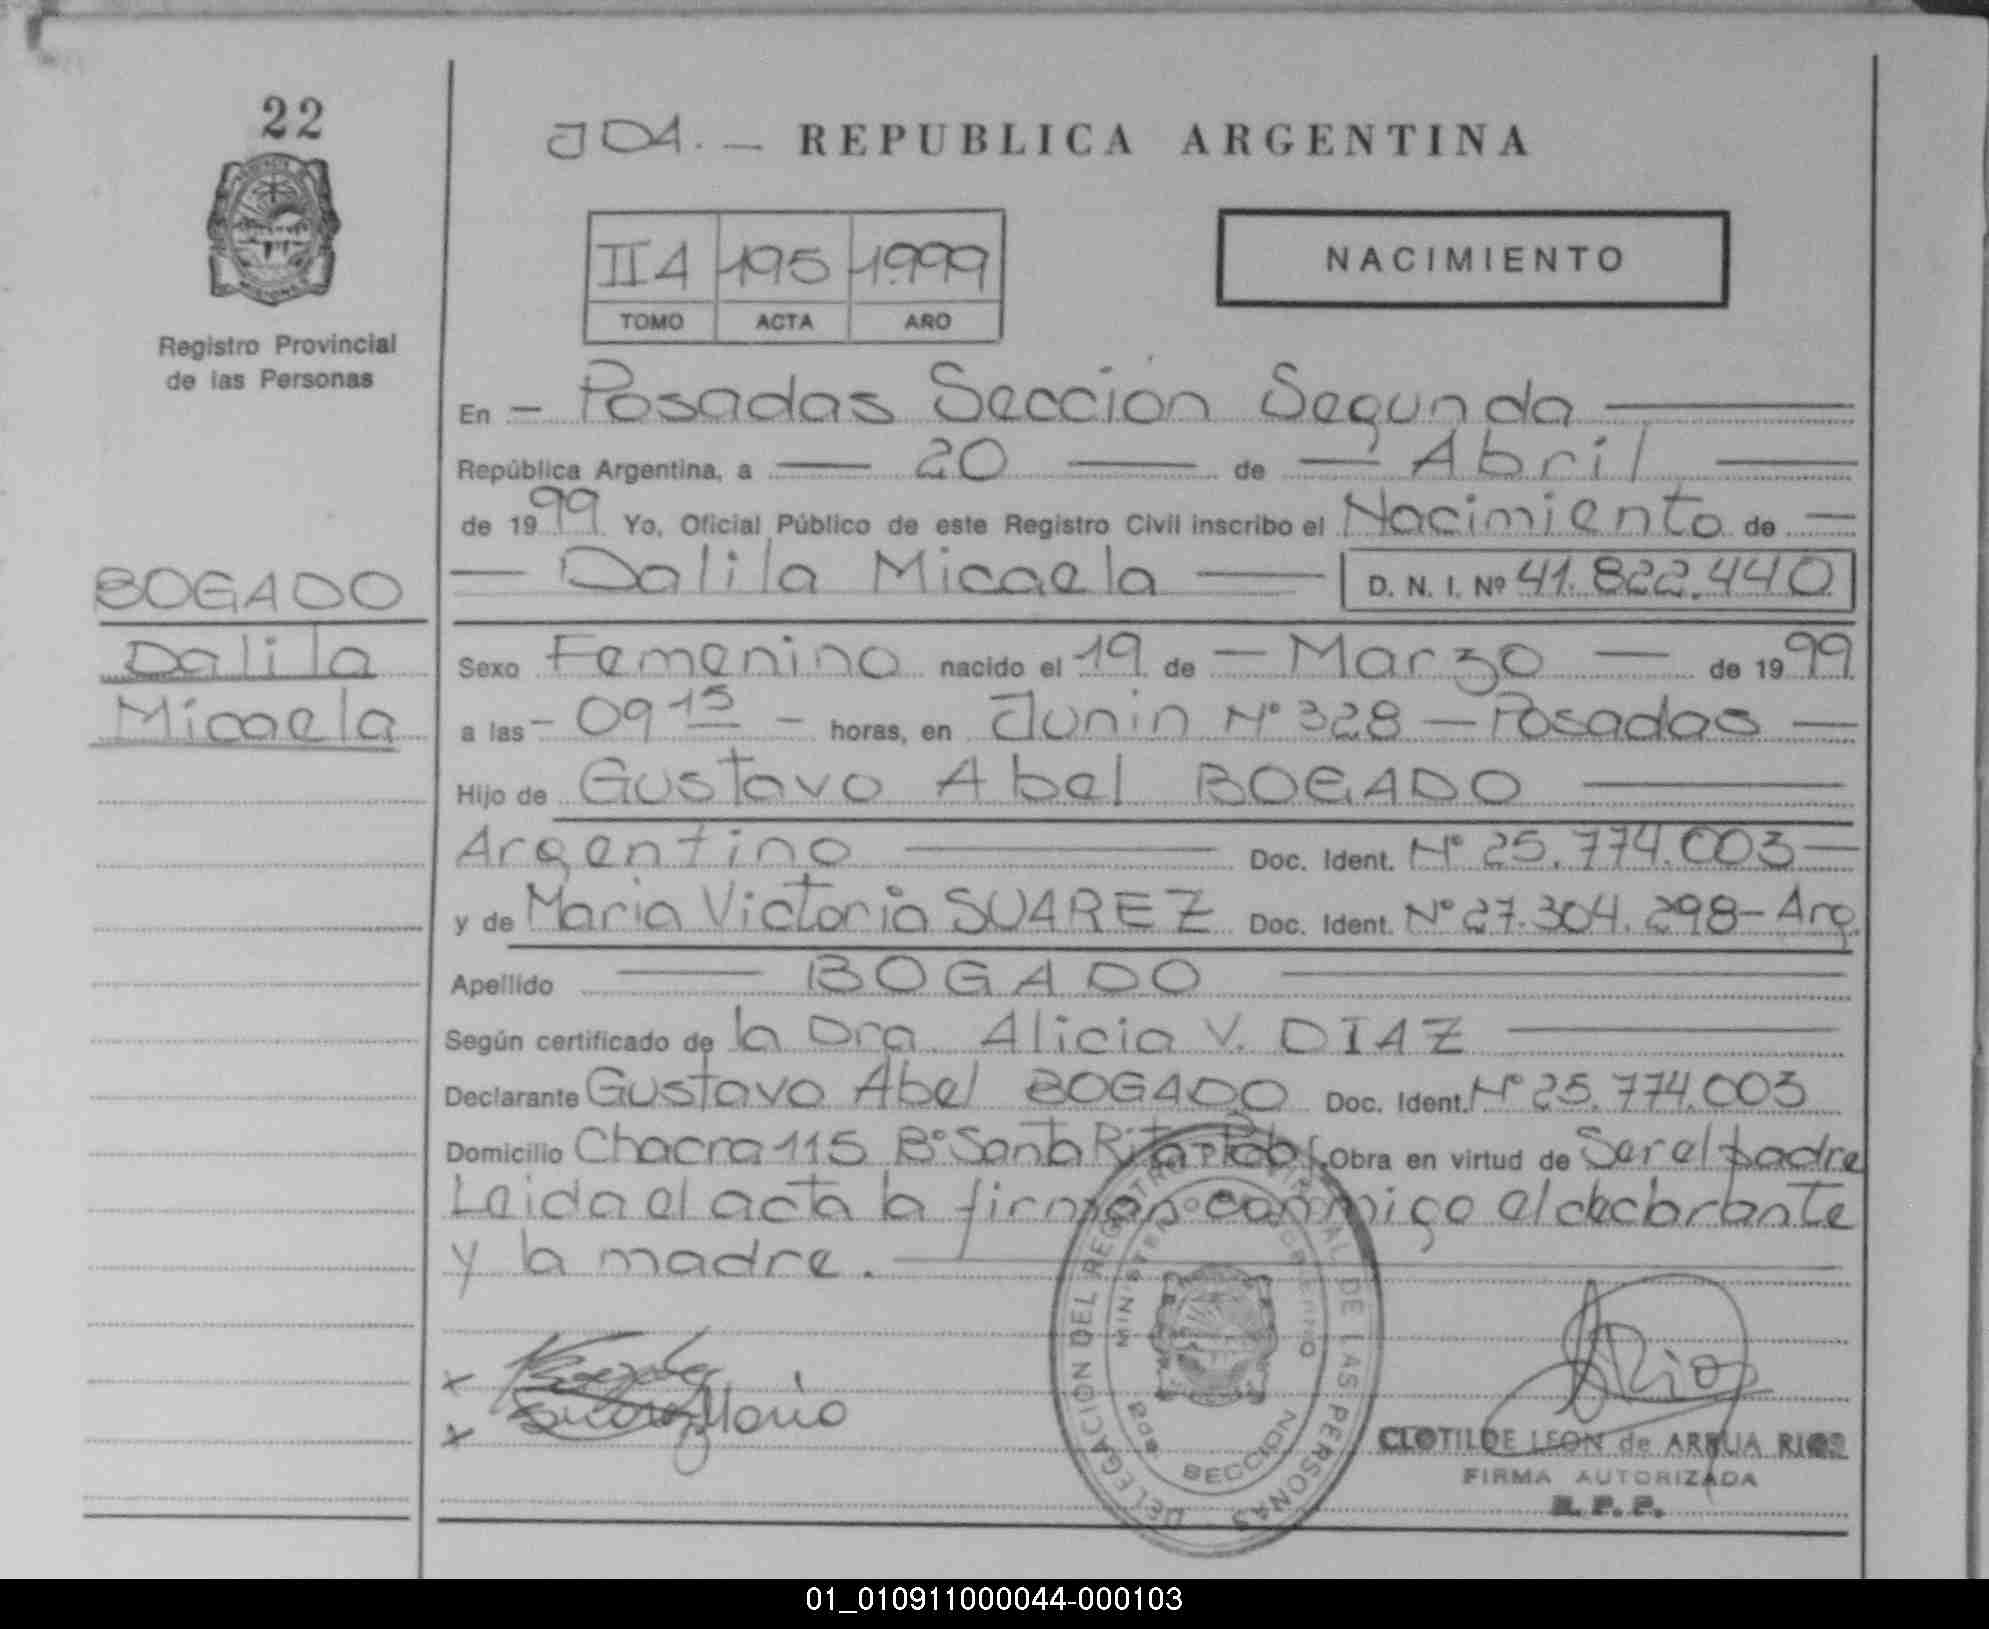 22
JDA. — REPUBLICA ARGENTINA
II4 195 1.999
TOMO ACTA ARO
NACIMIENTO
Registro Provincial
de las Personas
En — Posadas Sección Segunda —
República Argentina, a — 20 — de — Abril —
de 1999 Yo, Oficial Público de este Registro Civil inscribo el Nacimiento de —
— Dalila Micaela — D. N. I. Nº 41.822.440
BOGADO
Dalila
Micaela
Sexo Femenino nacido el 19 de — Marzo — de 1999
a las — 09 15 — horas, en Junin Nº 328 — Posadas —
Hijo de Gustavo Abel BOGADO —
Argentino — Doc. Ident. Nº 25.774.003 —
y de Maria Victoria SUAREZ Doc. Ident. Nº 27.304.298 - Arg.
Apellido — BOGADO —
Según certificado de la Dra Alicia V. DIAZ —
Declarante Gustavo Abel BOGADO Doc. Ident. Nº 25.774.003
Domicilio Chacra 115 Bº Santa Rita - Pdas. Obra en virtud de Ser el padre
Leida el acta la firman conmigo el declarante
y la madre. —
x
x Suarez Maria
DELEGACION DEL REGISTRO PROVINCIAL DE LAS PERSONAS
MINISTERIO DE GOBIERNO
2da. SECCION
Rios
CLOTILDE LEON de ARRUA RIOS
FIRMA AUTORIZADA
R. P. P.
01_010911000044-000103